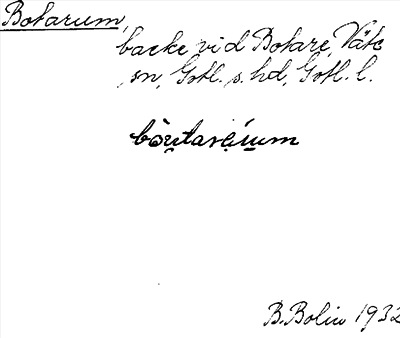 Botarum,
backe vid Botare, Väte
sn, Gotl. s. hd, Gotl. l.
bòutarèium
B. Bolin 1932